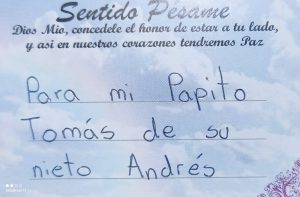 Sentido Pésame
Dios Mio, concedele el honor de estar a tu lado,
y asi en nuestros corazones tendremos Paz
Para mi Papito
Tomás de su
nieto Andrés